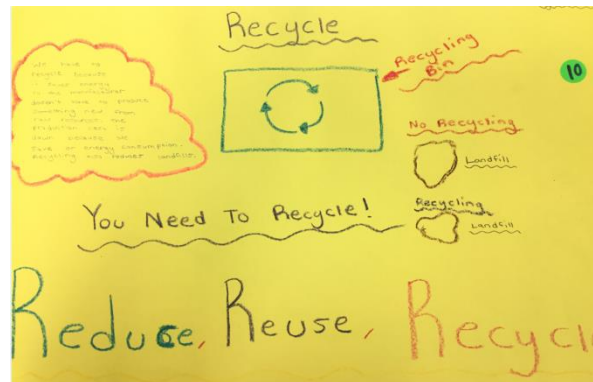 Recycle
We have to
recycle because
it saves energy
is the manufacturer
doesn't have to produce
something new from
raw
Save on energy consumption.
Recycling also reduces landfill.
Recycling
Bin
10
No Recycling
Landfill
Recycling
Landfill
You Need To Recycle!
Reduce, Reuse, Recycl